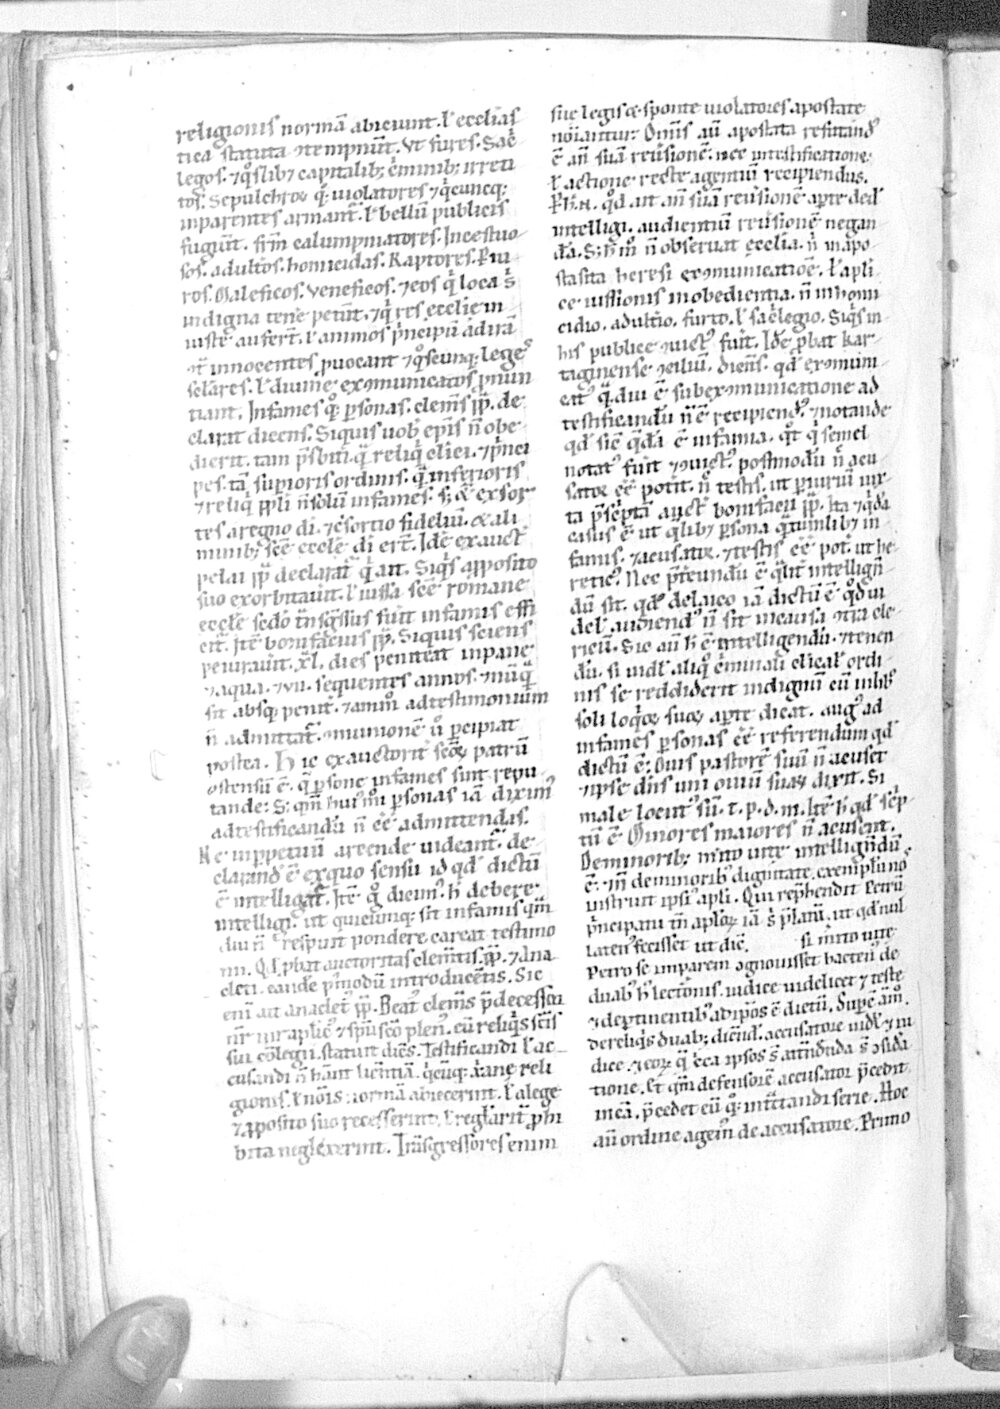 religionis normā abiciunt. l' ecclias
tica statuta ↄtempnūt. vt fures. Sac̄
legos. ⁊ q̊slib; capitalib; c̄minib; irreti
tos. Sepulchroꝝ q̊. violatores ⁊ q̄cunq;
inparentes armant̄. l' bellū publicis
fugiūt. frm̄ calumpniatores. Incestuo
sos. adult̄os. homicidas. Raptores. P̄iu
ros. Maleficos. veneficos. ⁊ eos q̊ loca s̊
indigna tene petūt. ⁊ q̊ res ecclie in
iuste auferūt. l' animos p̊ncipū ad irā
innocentes puocant ⁊ q̊scunq; lege
selares. l' diuine exↄmunicatos pnun
tiant. Infames q̊. psonas. clem̄s pp̄. de
clarat dicens. Siquis uob̄ ep̄is n̄ obe
dierit. tam p̄sbit̄i. q̄ reliq̊ cl'ici. ⁊ p̊nci
pes. tā supioris ordinis. q̄ inferioris
⁊ reliq̊ pp̄li n̄ solū infames. s; ⁊ exsor
tes a regno di. ⁊ ↄsortio fideliū. ⁊ a li
minib; sc̄e eccle di erūt. Idē ex auct̄
pelai pp̄ declarat̄ q̊ ait. Siq̊s a pposito
suo exorbitauit. l' iussa sc̄e romane
eccle sedis tn̄sg̊ssus fuit infamis effi
cit̄. Itē bonifacius pp̄. Siquis sciens
peiurauit. xl. dies peniteat in pane
⁊ aqua. ⁊ vii. sequentes annos. ⁊ nūq̄
sit absq; penit. ⁊ amō ad testimonium
n̄ admittat̄. ↄmunionē u̅ pcipiat
postea. Hic ex auctorit̄ sc̄oꝝ patrū
ostensū ē. q̄ psone infames sint repu
tande. S; qm̄ hui'm̊i psonas iā dixim'
ad testificandū n̄ ēē admittendas.
Ne inppetuū arcende uideant̄. de
clarand' ē ex quo sensu id qd' dictū
ē intelligat̄. Itē g̊ dicim'. h̄ debere
intelligi. ut quicunq; sit infamis qm̄
diu n̄ respuit pondere careat testimo
nii. Qd' pbat auctoritas clem̄tis. pp̄. ⁊ ana
cleti. eande pmodū introducentis. Sic
enī ait anaclet' pp̄. Beat' clem̄s p̄decessor
nr̄ uir aplic' ⁊ spū sc̄o plen'. cū reliq̊s sc̄is
sui collegii. statuit diēs. Testificandi l' ac
cusandi n̄ hānt licentiā. q̊cūq; x̄ane reli
gionis. l' nois. normā abiecerint. l' a lege
⁊ pposito suo recesserint. l' reglarit̄ phi
bita neglexerint. Trāsgressores enim
sue legis ⁊ sponte uiolatores apostate
noīantur. Om̄is aū apostata refutand'
ē an̄ suā reūsionē. nec in testificatione
l' actione recte agentiū recipiendus.
P̄h. n̄. qd' ait an̄ suā reūsionē apte ded'
intelligi. audientiū reūsionē negan
dā. S; h̄ m̊ n̄ obseruat ecclia. n̄ in apo
stasita heresi exↄmunicatiōe. l' apli
ce iussionis inobedientia. n̄ in homi
cidio. adult̄io. furto. l' sac̄legio. Siq̊s in
his publice ↄuict' fuit. Idē pbat kar
taginense ↄciliū. dicēs. qd' exↄmuni
cat' q̄ diu ē sub exↄmunicatione ad
testificandū n̄ ē recipiend'. ⁊ notande
qd' sic q̄dā ē infamia. qt̄ q̊ semel
notat' fuit ⁊ ↄuict'. postmodū n̄ acu
sator ēē potit. n̄ testis. ut piurium iux
ta p̄septā auct̄ bonifacii pp̄. Ita ⁊ q̊dā
casus ē. ut q̄lib; psona q̄tūlib; in
famis. ⁊ acusator. ⁊ testis ēē pot̄. ut he
retic'. Nec p̄t̄eundū ē q̄lit̄ intellign̄
dū sit. qd' de laico iā dictū ē qd' ui
del'. audiend' n̄ sit in causa ↄtra cle
ricū. Sic aū h̄ ē intelligendū. ⁊ tenen
dū. si uidl' aliq' c̄minali clical' ordi
nis se reddiderit indignū cū in his
soli loq̊ꝝ suoꝝ apte dicat. aug' ad
infames psonas ēē referendum qd'
dictū ē. Ouis pastorē suū n̄ acuset
⁊ ipse dn̄s uni ouiū suaꝝ dixit. Si
male locut' sū. t. p. d. m. Itē h̄ qd' sc̄p
tū ē Minores maiores n̄ acusent.
De minorib; mito uite intelligēdū
ē. n̄ de minorib' dignitate. exemplū no
instruit ipsi' apli. Qui rep̄hendit Petrū
p̊ncipatu tn̄ aploꝝ iā s̊ p̄latū. ut qd' nul
laten' fecisset ut dic̄. si mito uite
Petro se imparem ↄgnouisset hacten' de
duab' h' lectōnis. iudice uidelicet ⁊ teste
⁊ de ptinentib' ad ipōs ē dictū. Supē am̊.
de reliq̊s duab; dicend'. accusatore uidl' ⁊ iu
dice. ⁊ eoꝝ q̄ c̄ca ipsos s̄ attn̄denda s̄ ↄsida
tione. Et qm̄ defensorē accusator p̄cedit
in cā. p̄cedet cū q̊. in t̄ctandi serie. Hoc
aū ordine agem' de accusatore. Primo